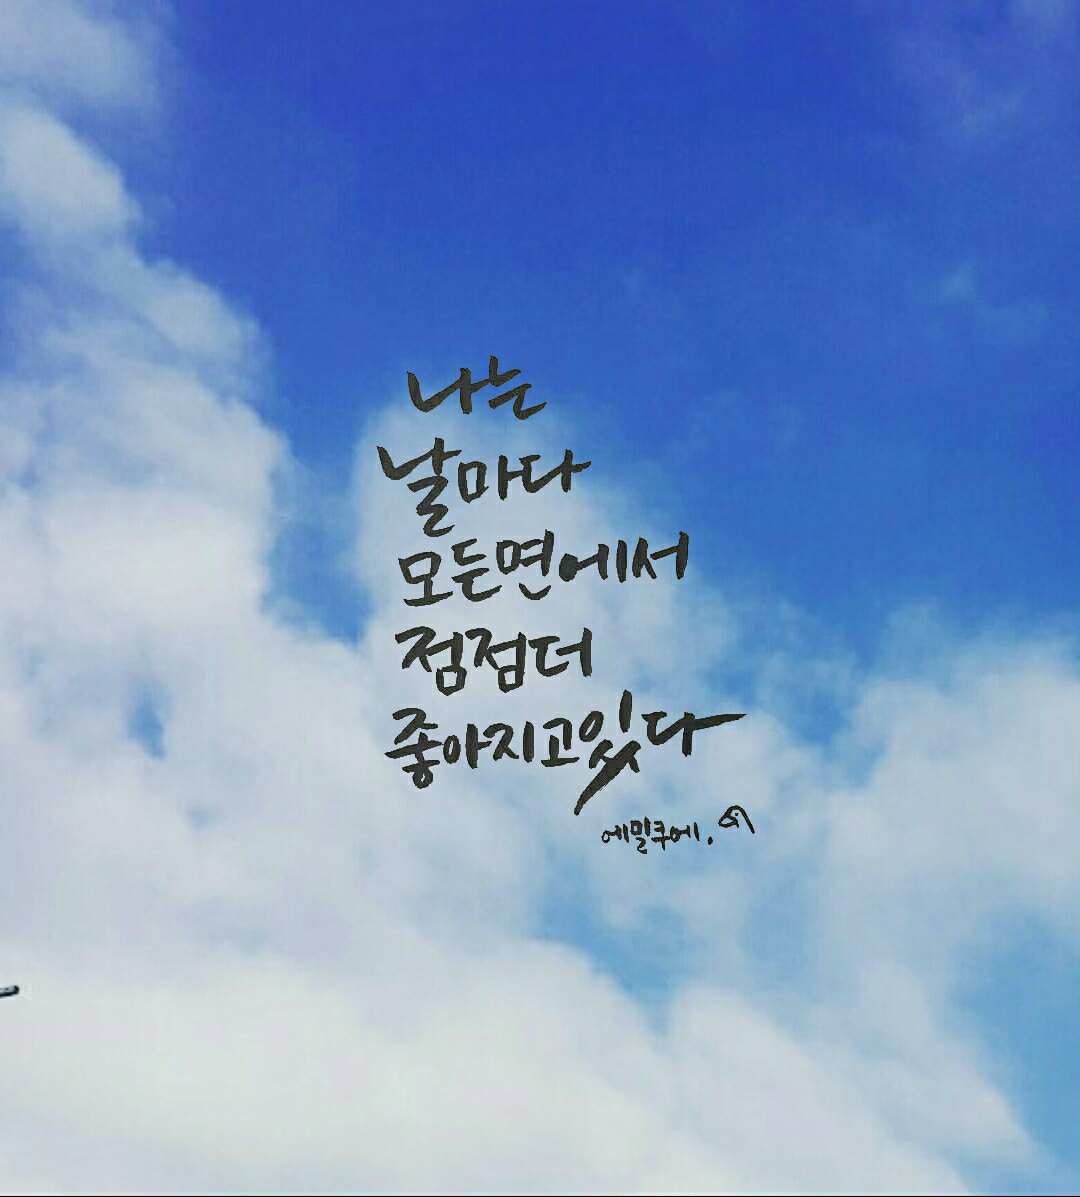 나는
날마다
모든면에서
점점더
좋아지고있다
에밀쿠에.